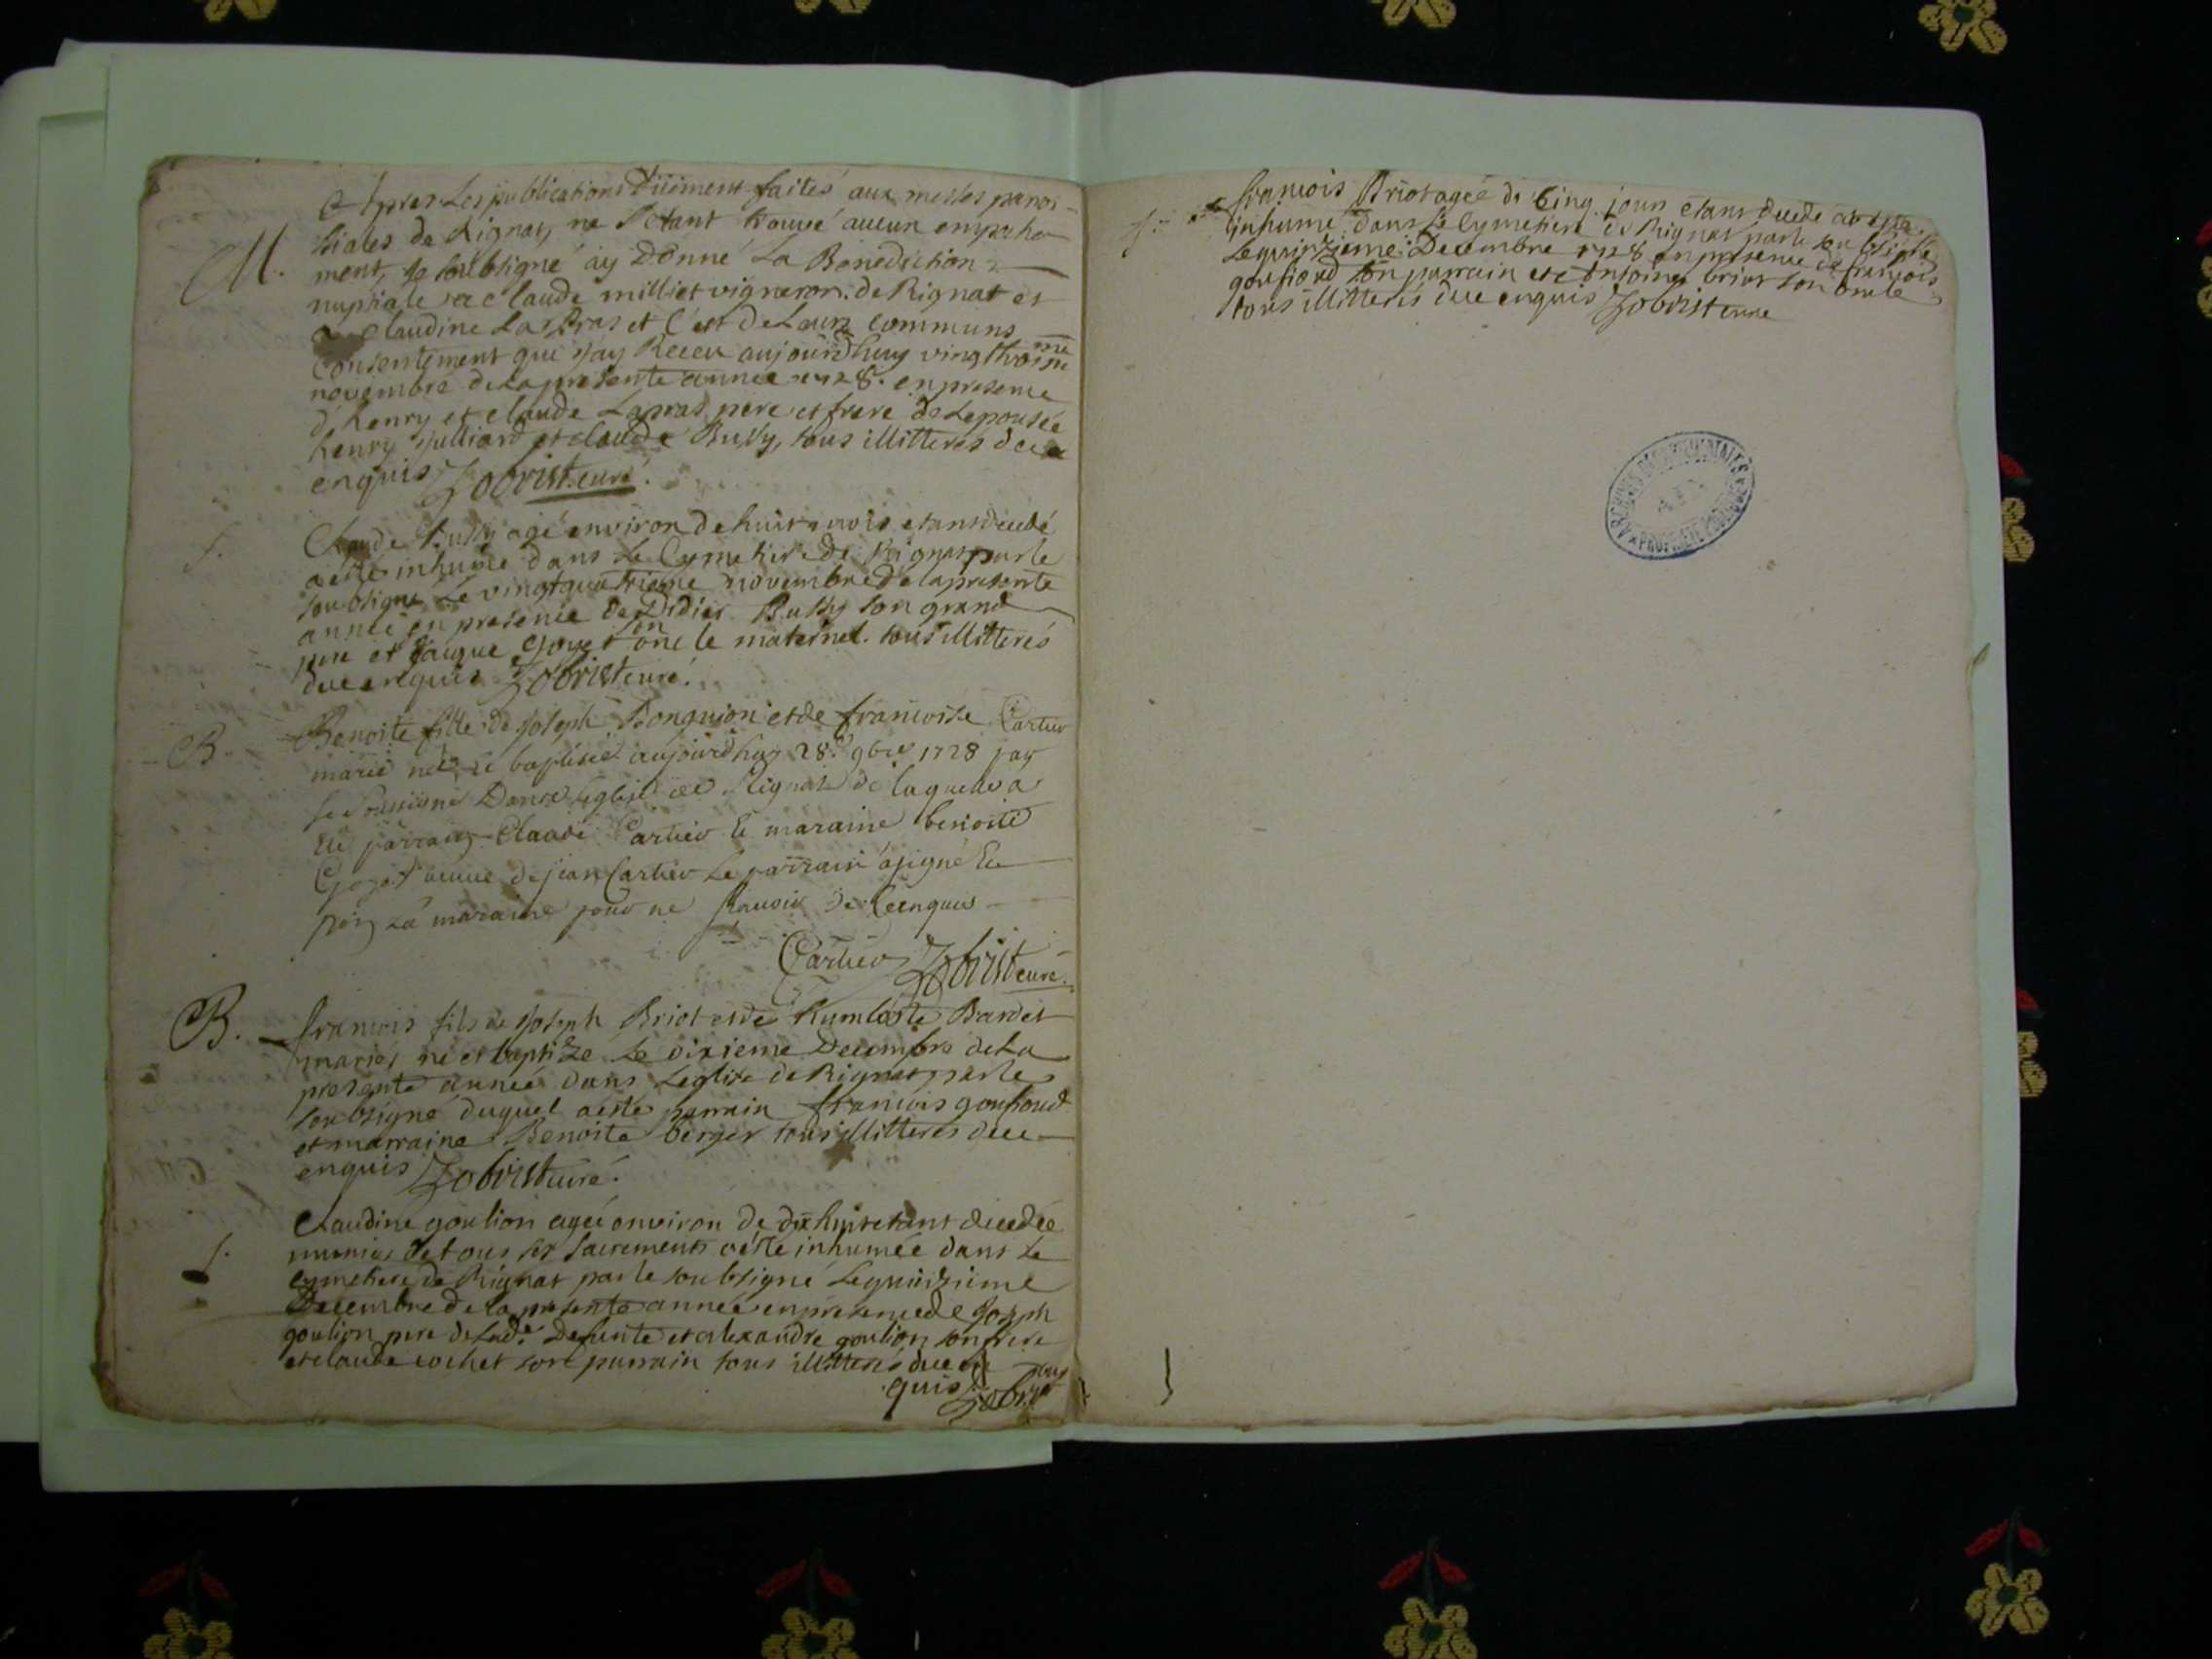 Apres Les publications düement faites aux messes parois-
siales de Rignat, ne s'etant trouvé aucun empeche-
M. ment, je soubsigné ay Donné La Benediction
nuptiale a claude milliet vigneron de Rignat et
a claudine Lapras et c'est de Leurs communs
consentement que j'ay Receu aujourdhuy vingtroisme
novembre de La presente année 1728. en presence
d'henry et claude Lapras pere et frere de Lepousée
henry julliard et claude Bussy, tous illitterés deue
enquis Zobrist curé.
S. Claude Bussy agé environ de huit mois etant decedé
a esté inhumé dans Le Cymetiere de Rignat par le
soubsigné Le vingt quatrieme novembre de la presente
année en presence de Didier Bussy son grand
pere et jacque goyet son oncle maternel. tous illitterés
due enquis Zobrist curé.
B. Benoite fille de joseph Bonguion et de francoise Cartier
marié née et baptisée aujourdhuy 28e 9bre 1728 par
le soussigné Dans Leglise de Rignat de laquelle a
été parrain Claude Cartier et maraine benoite
Goyet veuve de jean Cartier Le parrain a signé Et
non La maraine pour ne scauoir De ce enquis
Cartier Zobrist curé.
B. francois fils de joseph Briot et de humberte Bardet
mariés né et baptizé Le dixieme Decembre de La
presente année dans Leglise de Rignat par le
soubsigné duquel a esté parrain francois goufioud
et marraine Benoite berger tous illitterés deue
enquis Zobrist curé.
S. Claudine goulion ageé environ de dix huit etant decedée
munie de tous les sacrements a esté inhumée dans Le
cymetiere de Rignat par le soubsigné Le quinzieme
Decembre de la presente année en presence de joseph
goulion pere de Lade. Defunte et alexandre goulion son frere
et claude cochet son parrain tous illitterés due en
quis Zobrist
S. francois Briot ageé de cinq jours etans decedé at este
inhume dans Le Cymetiere de Rignat par le soubsigne
Le quinzieme Decembre 1728 en presence de francois
goufioud son parrain et antoine briot son oncle
tous illitterés due enquis Zobrist curé
ARCHIVES DÉPARTEMENTALES
AIN
PROPRIÉTÉ PUBLIQUE